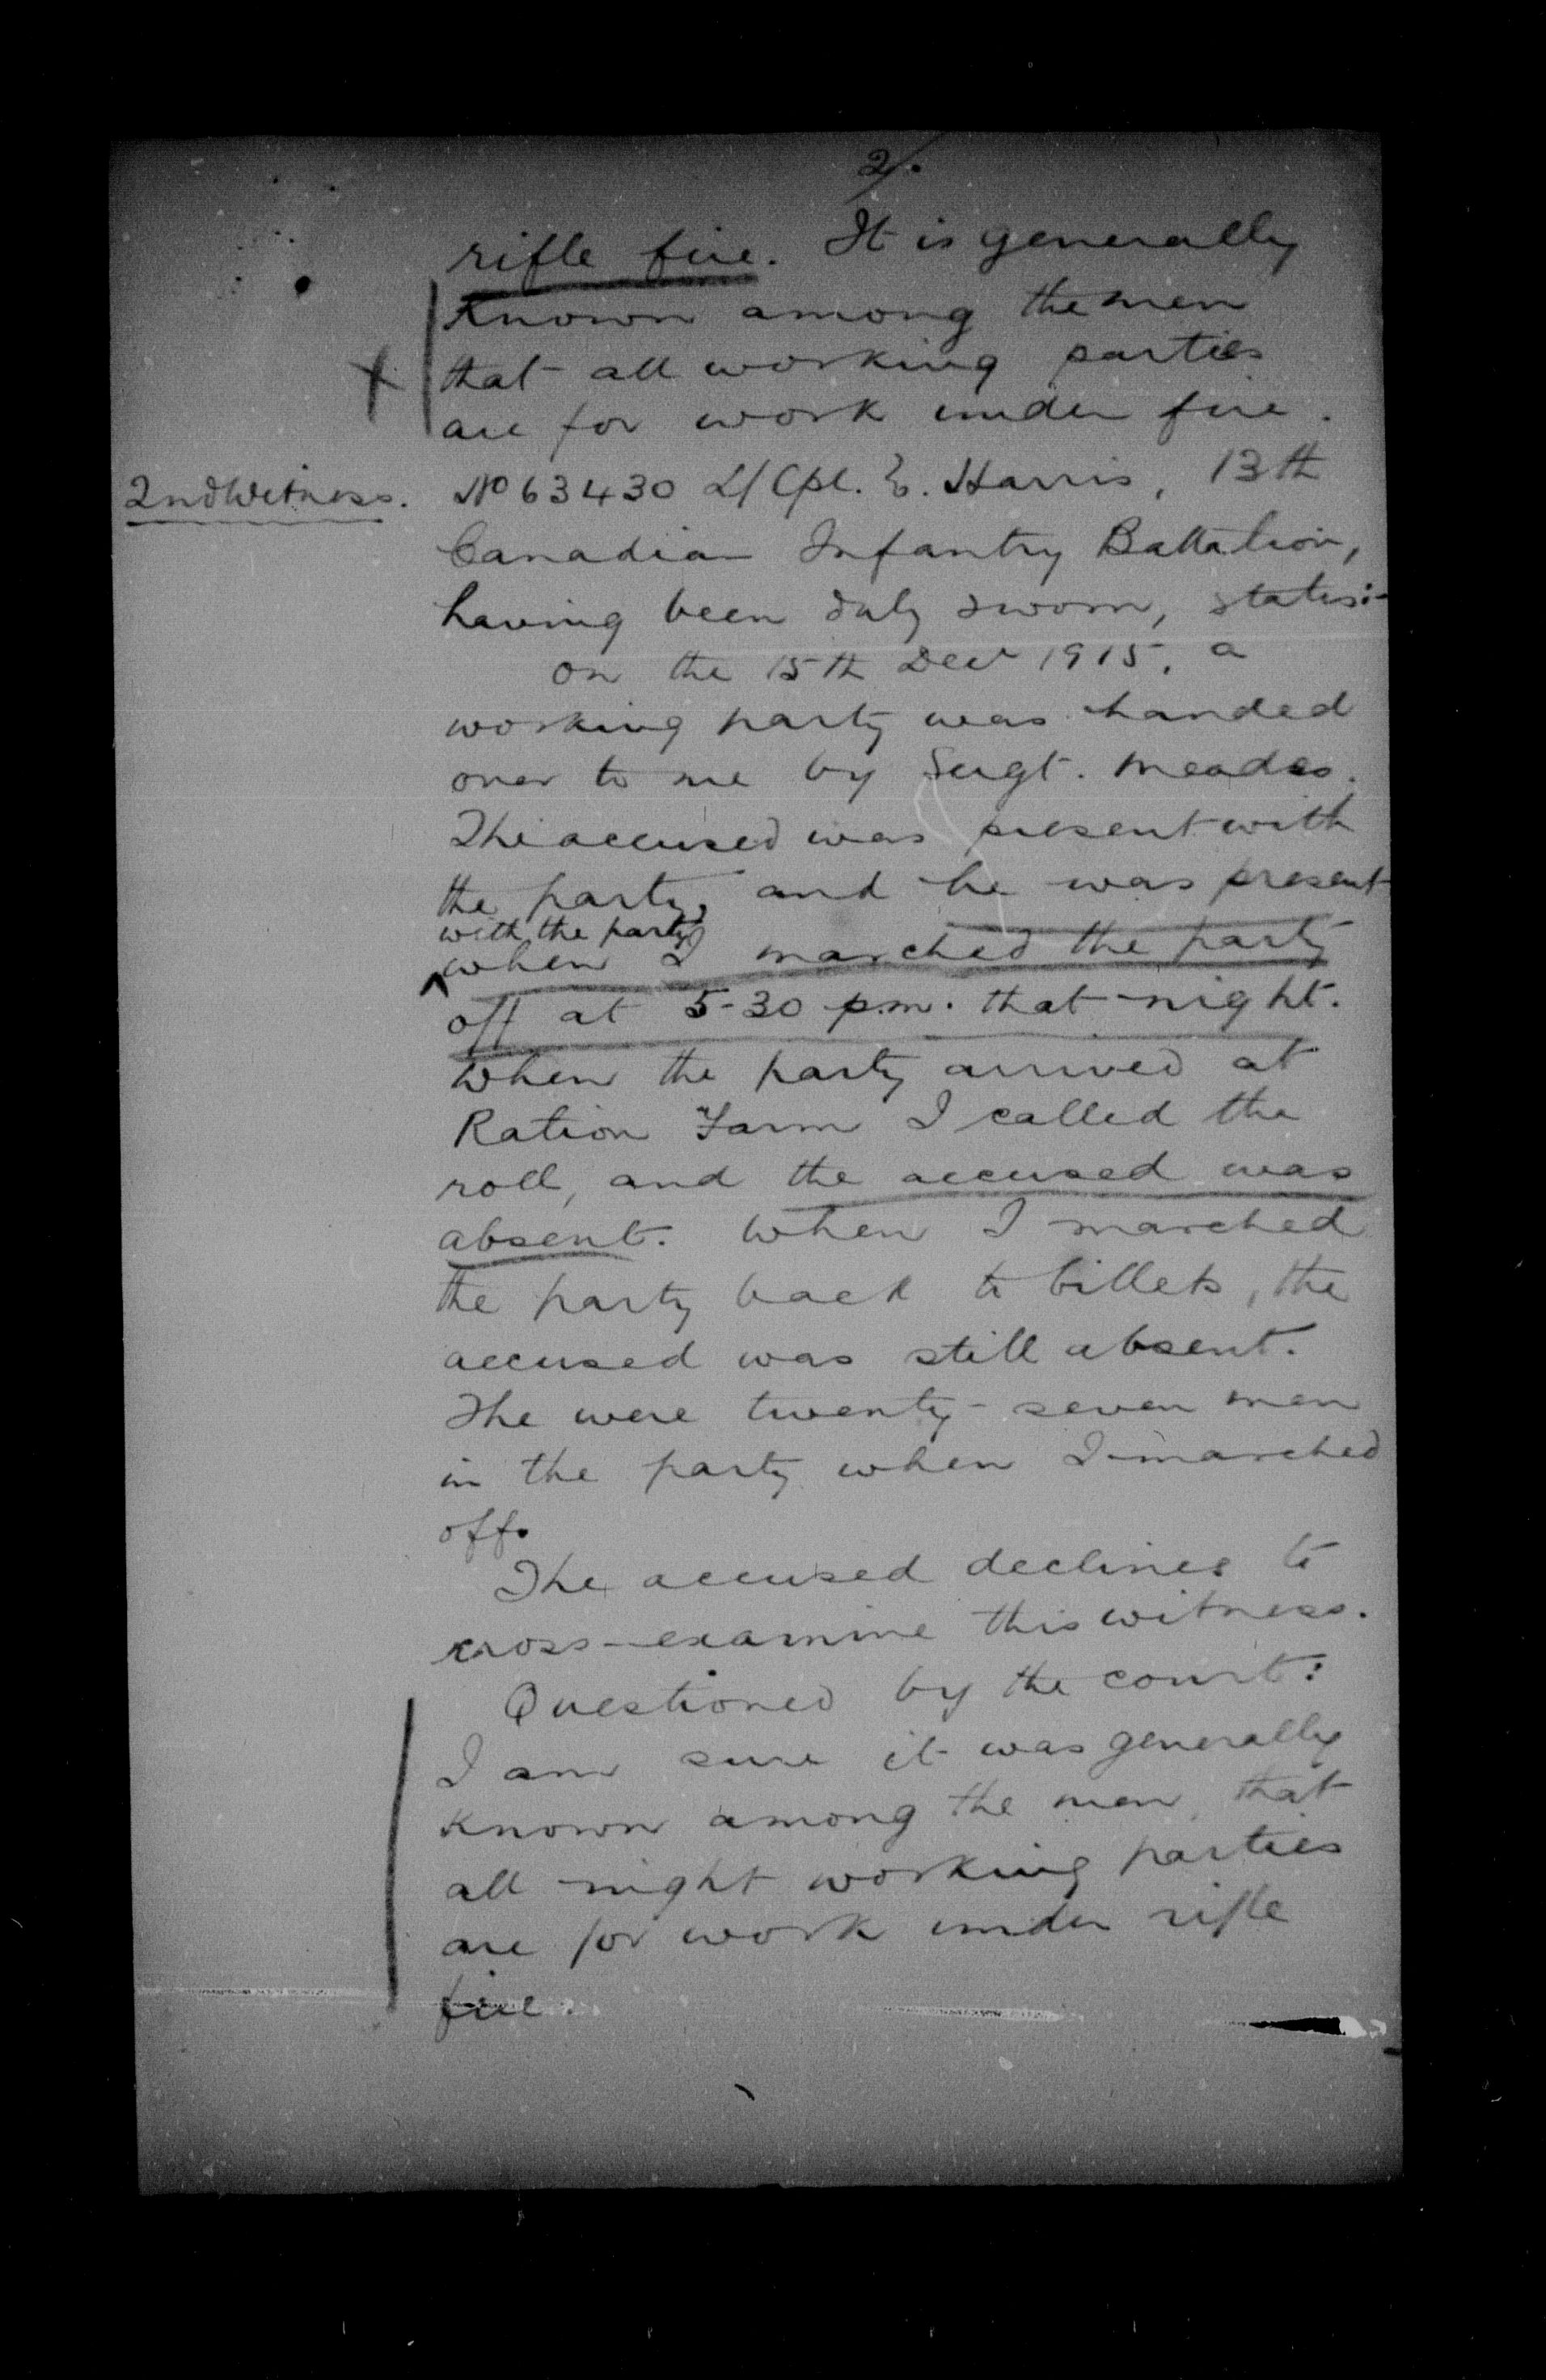 2/.
rifle fire. It is generally
known among the men
that all working parties
are for work under fire.
2nd Witness. No 63430 L/Cpl. E. Harris, 13th
Canadian Infantry Battalion,
having been duly sworn, states:-
on the 15th Decr 1915, a
working party was handed
over to me by Sergt. Meades.
The accused was present with
the party, and he was present
with the party
when I marched the party
off at 5-30 p.m. that night.
When the party arrived at
Ration Farm I called the
roll, and the accused was
absent. When I marched
the party back to billets, the
accused was still absent.
The were twenty-seven men
in the party when I marched
off.
The accused declines to
cross-examine this witness.
Questioned by the court:
I am sure it was generally
known among the men, that
all night working parties
are for work under rifle
fire.